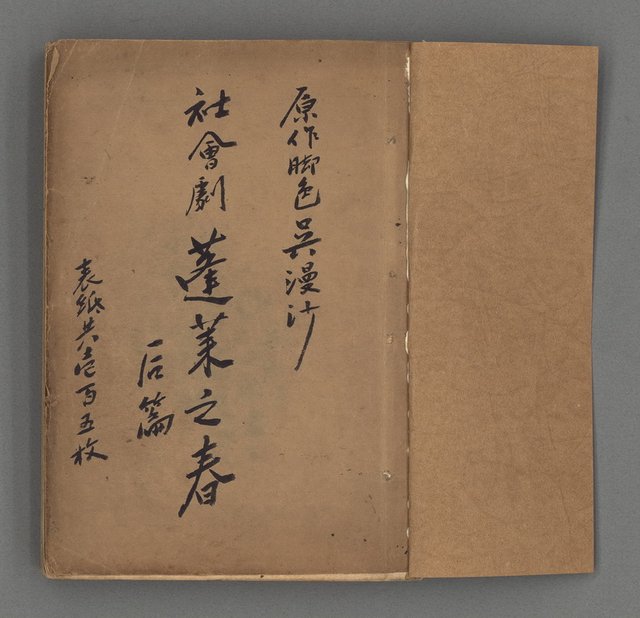 原作脚色吳漫沙
社會劇 蓬萊之春
后篇
表紙共壱百五枚